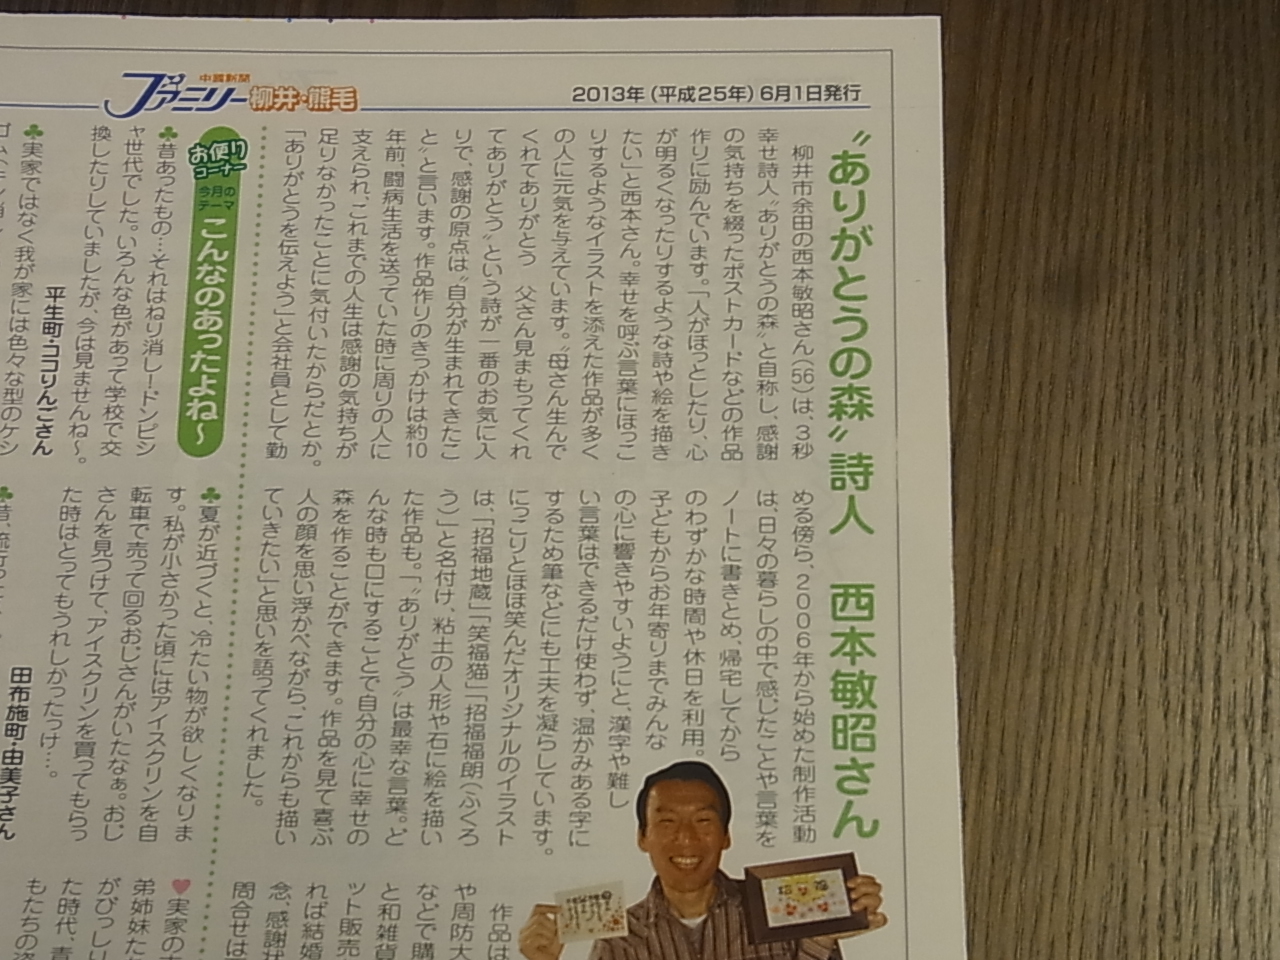 中國新聞
ファミリー柳井・熊毛
2013年(平成25年)6月1日発行
〝ありがとうの森〟詩人 西本敏昭さん
柳井市余田の西本敏昭さん(56)は、3秒
幸せ詩人〝ありがとうの森〟と自称し、感謝
の気持ちを綴ったポストカードなどの作品
作りに励んでいます。「人がほっとしたり、心
が明るくなったりするような詩や絵を描き
たい」と西本さん。幸せを呼ぶ言葉にほっこ
りするようなイラストを添えた作品が多く
の人に元気を与えています。〝母さん生んで
くれてありがとう 父さん見まもってくれ
てありがとう〟という詩が一番のお気に入
りで、感謝の原点は〝自分が生まれてきたこ
と〟と言います。作品作りのきっかけは約10
年前、闘病生活を送っていた時に周りの人に
支えられ、これまでの人生は感謝の気持ちが
足りなかったことに気付いたからだとか。
「ありがとうを伝えよう」と会社員として勤
める傍ら、2006年から始めた制作活動
は、日々の暮らしの中で感じたことや言葉を
ノートに書きとめ、帰宅してから
のわずかな時間や休日を利用。
子どもからお年寄りまでみんな
の心に響きやすいようにと、漢字や難し
い言葉はできるだけ使わず、温かみある字に
するため筆などにも工夫を凝らしています。
にっこりとほほ笑んだオリジナルのイラスト
は、「招福地蔵」「笑福猫」「招福福朗(ふくろ
う)」と名付け、粘土の人形や石に絵を描い
た作品も。「〝ありがとう〟は最幸な言葉。ど
んな時も口にすることで自分の心に幸せの
森を作ることができます。作品を見て喜ぶ
人の顔を思い浮かべながら、これからも描い
ていきたい」と思いを語ってくれました。
作品は
や周防大
などで購
と和雑貨
ット販売
れば結婚
念、感謝状
問合せは
お便りコーナー
今月のテーマ
こんなのあったよね〜
♣昔あったもの…それはねり消し！ドンピシ
ャ世代でした。いろんな色があって学校で交
換したりしていましたが、今は見ませんね〜。
平生町・ココりんごさん
♣実家ではなく我が家には色々な型のケシ
♣夏が近づくと、冷たい物が欲しくなりま
す。私が小さかった頃にはアイスクリンを自
転車で売って回るおじさんがいたなぁ。おじ
さんを見つけて、アイスクリンを買ってもらっ
た時はとってもうれしかったっけ…。
田布施町・由美子さん
♥実家の
弟姉妹た
がびっしり
た時代、青
もたちの姿